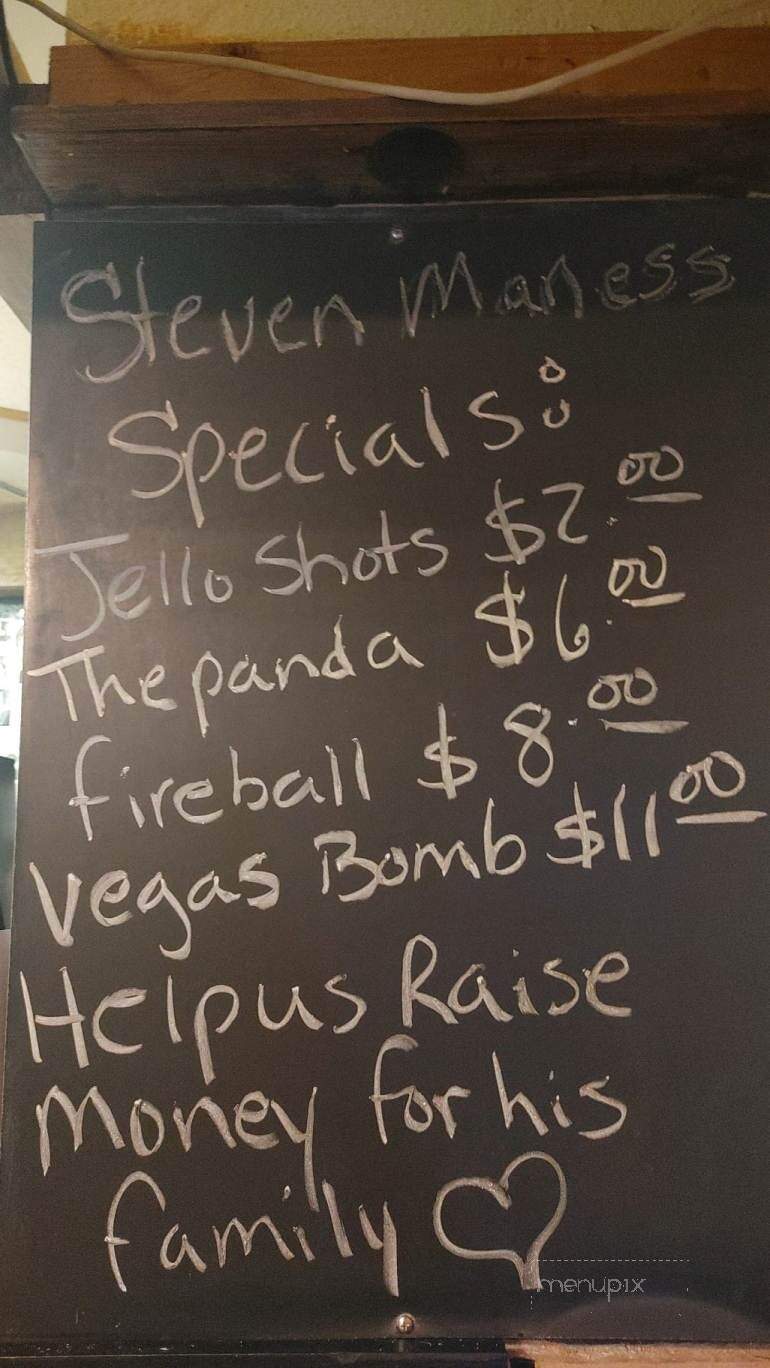 Steven Maness
Specials:
Jello Shots $2.00
The panda $6.00
fireball $8.00
Vegas Bomb $11 00
Help us Raise
Money for his
family
menupix